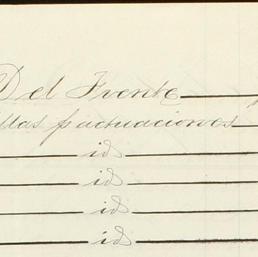 Del Frente
llas factuaciones
id
id
id
id